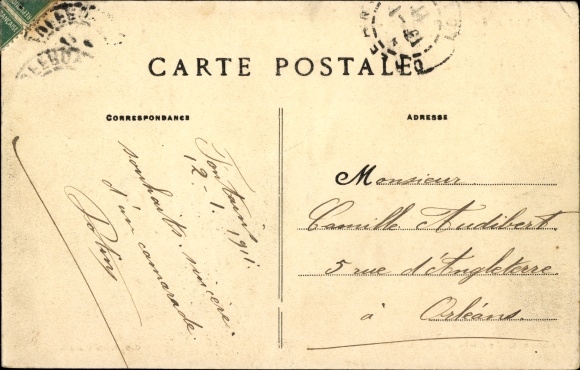 CARTE POSTALE
CORRESPONDANCE
12-1. 1911.
souhaits sincère
d'un camarade
ADRESSE
Monsieur
Camille Audibert
5 rue d'Angleterre
à Orléans.